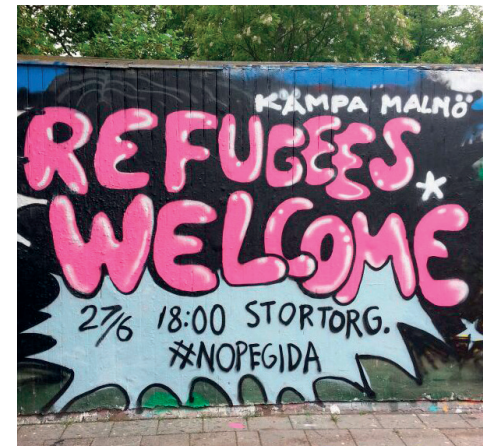 KÄMPA MALMÖ
REFUGEES
WELCOME
27/6 18:00 STORTORG.
#NOPEGIDA